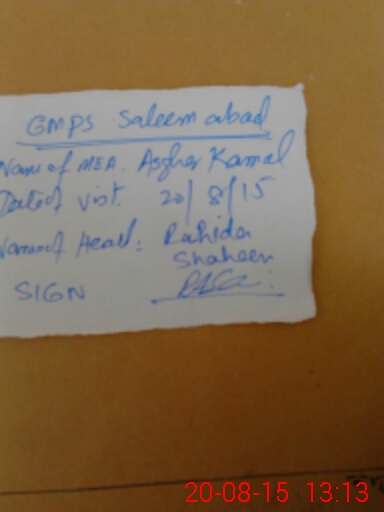 GMPS Saleem abad
Name of MEA. Asghar Kamal
Date of visit. 20/8/15
Name of Head: Rahida
Shaheen
SIGN
20-08-15 13:13